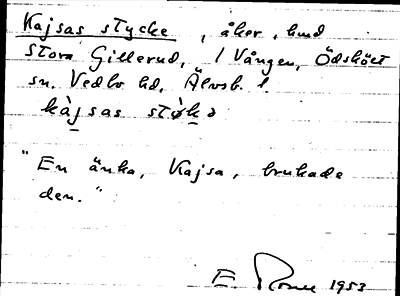 Kajsas stycke, åker, hmd
Stora Gillerud, 1 Vången, Ödskölt
sn. Vedbo hd, Älvsb. l.
kàjsas stỳkə
"En änka, Kajsa, brukade
den."
E. 1953